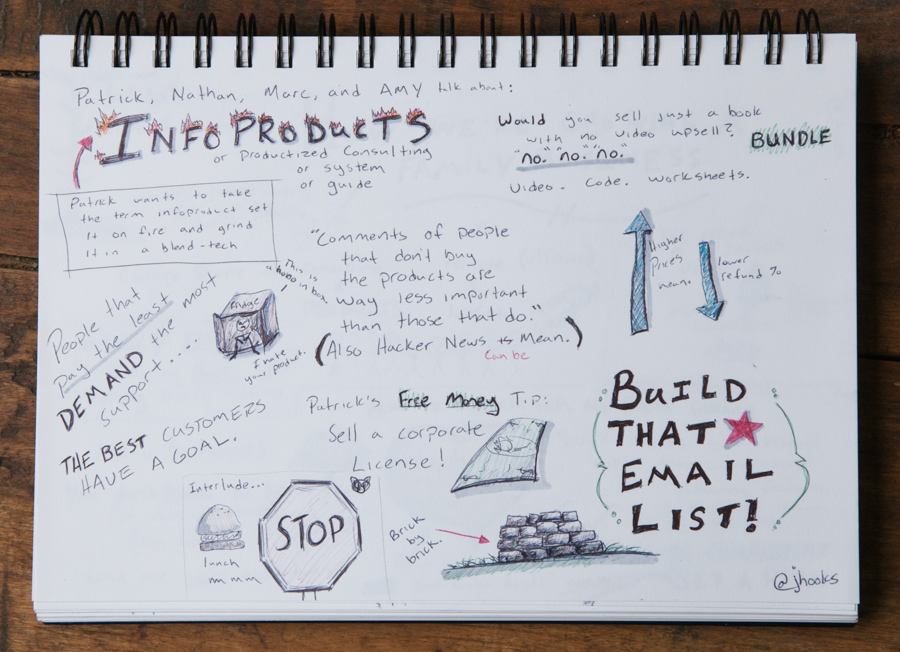 Patrick, Nathan, Marc, and Amy talk about:
INFOPRODUCTS
or Productized Consulting
or system
or guide
Patrick wants to take
the term infoproduct set
it on fire and grind
it in a blend-tech
Would you sell just a book
with no video upsell?
"no." "no." "no."
Video. Code. Worksheets.
BUNDLE
Higher
Prices
mean
lower
refund %
"Comments of people
that don't buy
the products are
way less important
than those that do."
(Also Hacker News is Mean.)
can be
People that
pay the least
DEMAND the most
support.....
This is
a hobo in box.
I hate
your product.
THE BEST CUSTOMERS
HAVE A GOAL.
Patrick's Free Money Tip:
Sell a corporate
License!
BUILD
THAT
EMAIL
LIST!
Interlude...
lunch
mm mm
STOP
Brick
by
brick.
@jhooks